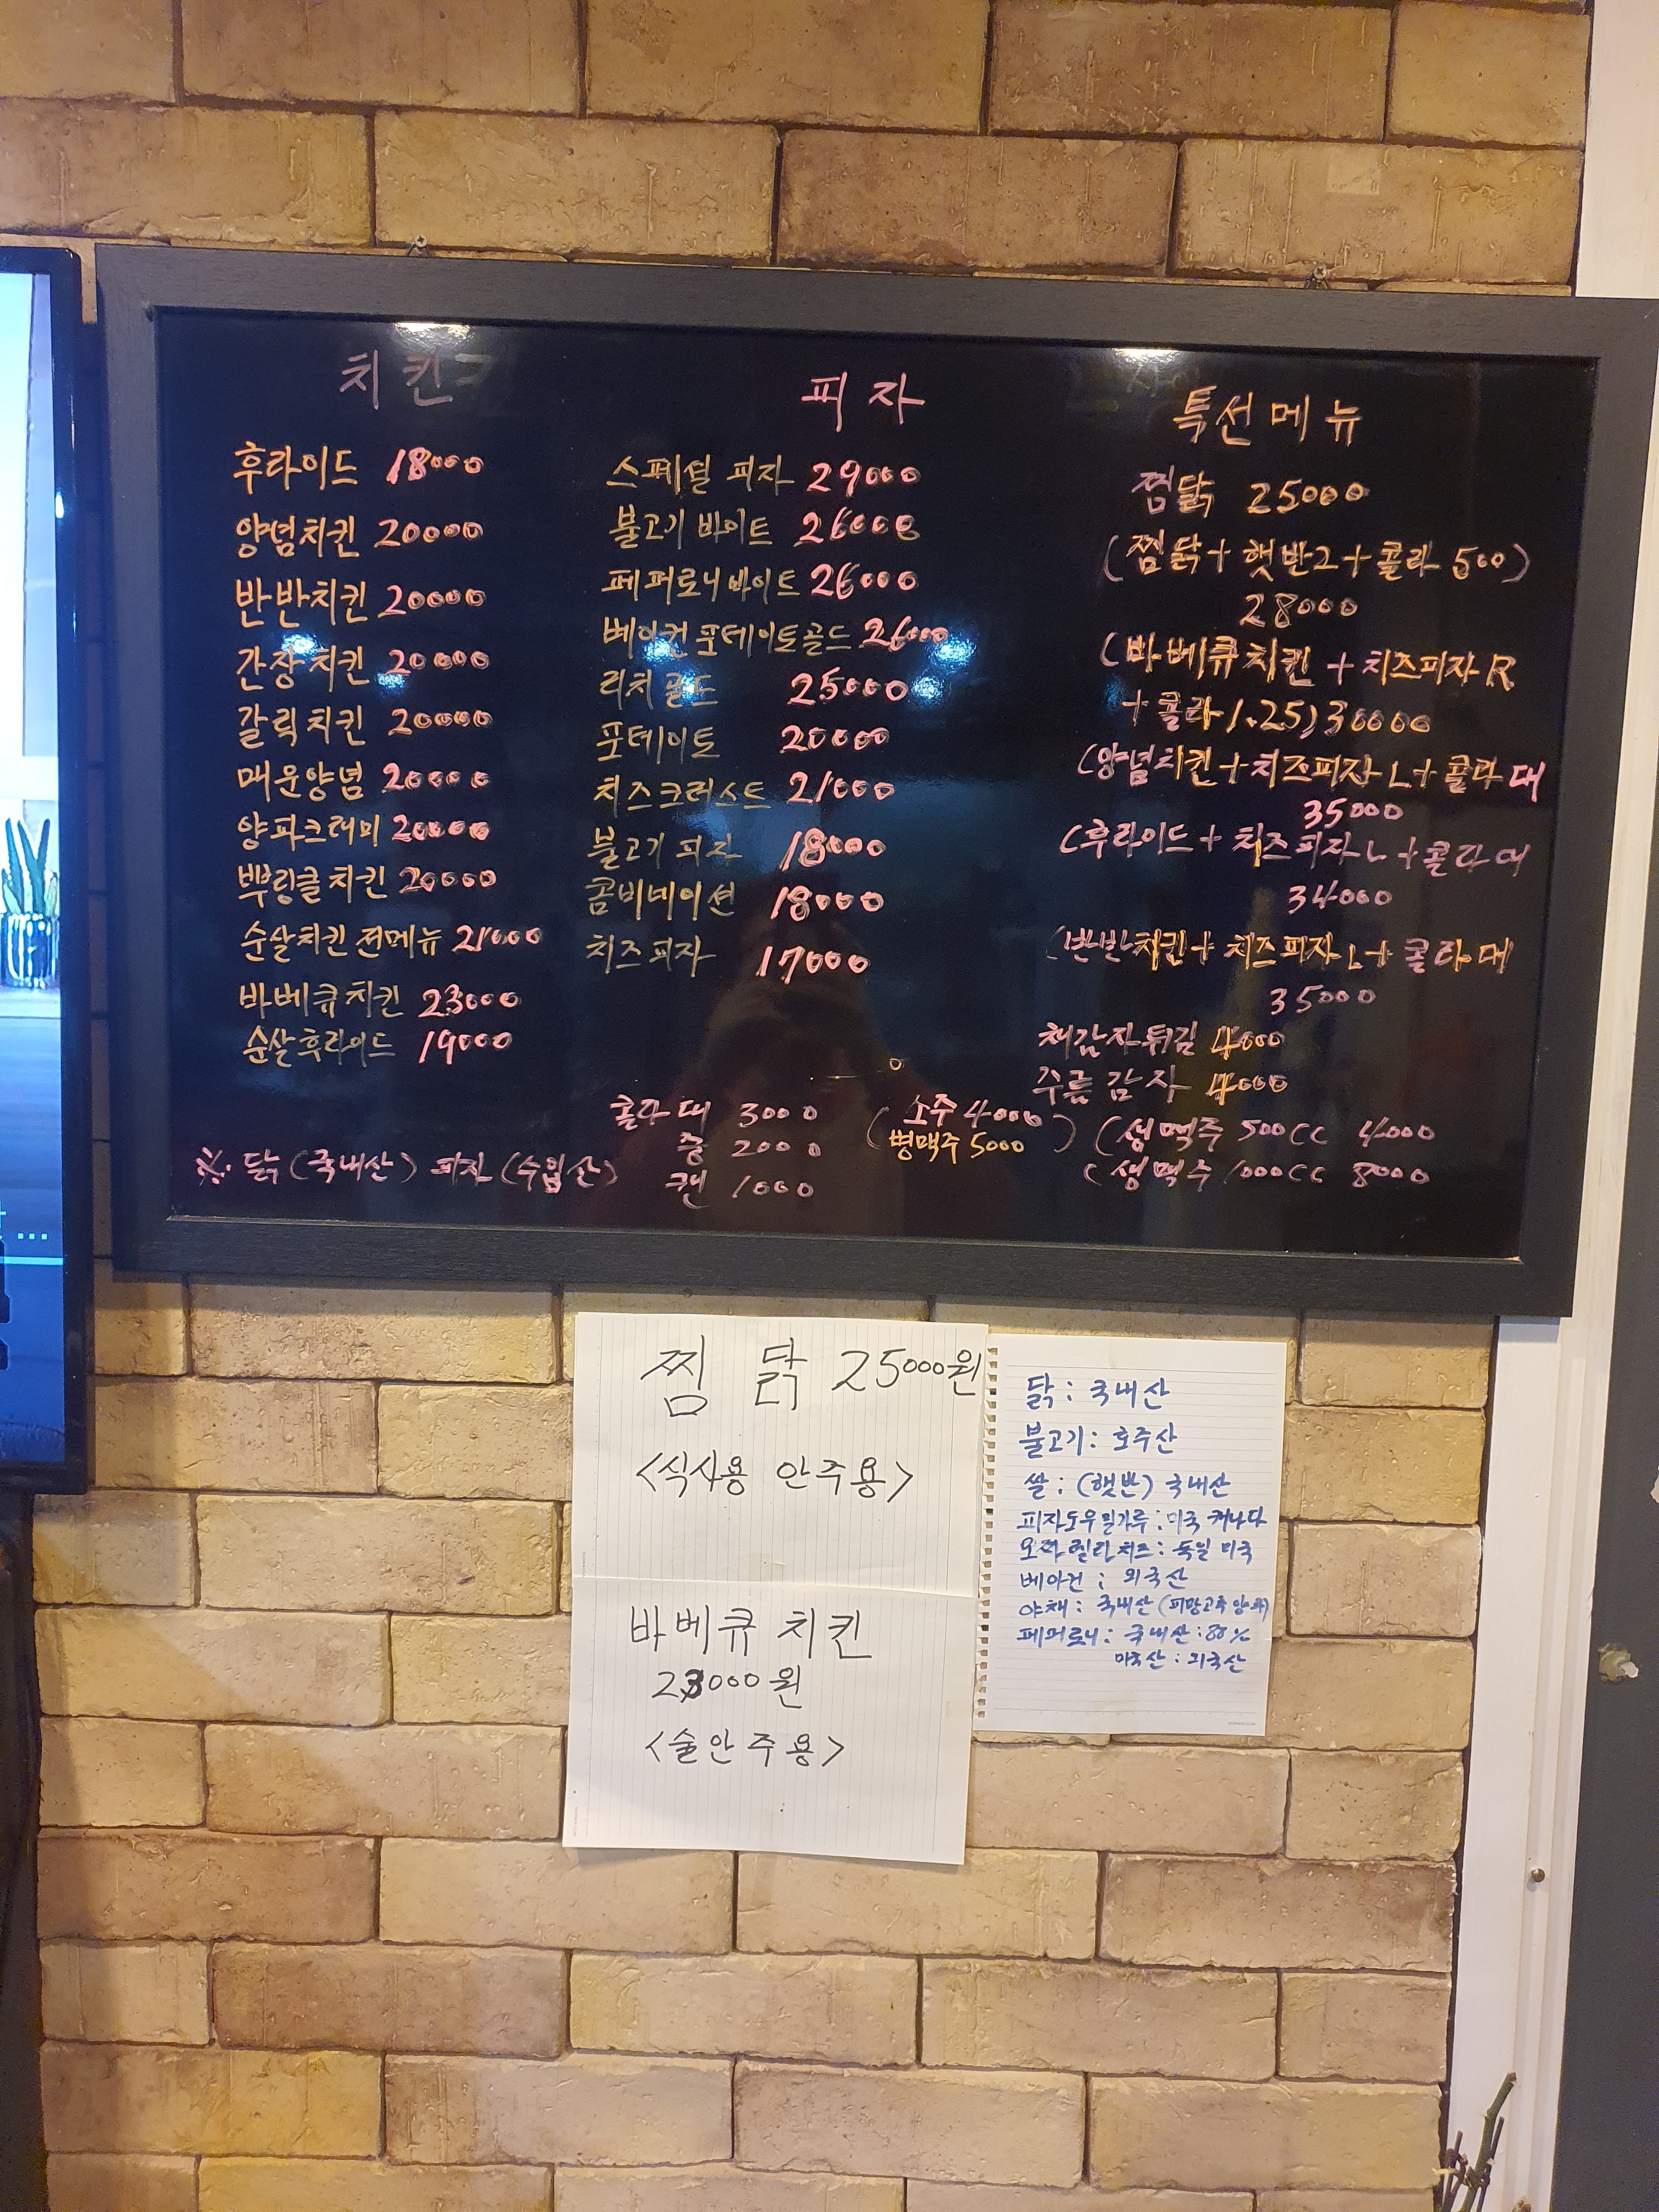 치킨
후라이드 18000
양념치킨 20000
반반치킨 20000
간장치킨 20000
갈릭치킨 20000
매운양념 20000
양파크래미 20000
뿌링클치킨 20000
순살치킨 전메뉴 21000
바베큐치킨 23000
순살후라이드 19000
피자
스페셜 피자 29000
불고기 바이트 26000
페퍼로니바이트 26000
베이컨포테이토골드 26000
리치골드 25000
포테이토 20000
치즈크러스트 21000
불고기 피자 18000
콤비네이션 18000
치즈피자 17000
특선메뉴
찜닭 25000
(찜닭+햇반2+콜라 500)
28000
(바베큐치킨 + 치즈피자 R
+콜라 1.25) 30000
(양념치킨+치즈피자 L+콜라 대
35000
(후라이드+치즈피자 L+콜라 대
34000
(반반치킨+치즈피자 L+콜라 대
35000
채감자튀김 4000
주름감자 4000
콜라 대 3000
중 2000
캔 1000
(소주 4000
병맥주 5000)
(생맥주 500CC 4000
(생맥주 1000CC 8000
※ 닭(국내산) 피자(수입산)
찜 닭 25000원
<식사용 안주용>
바베큐 치킨
23000원
<술안주용>
닭 : 국내산
불고기 : 호주산
쌀 : (햇반) 국내산
피자도우밀가루 : 미국 캐나다
모짜렐라치즈 : 독일 미국
베이컨 : 외국산
야채 : 국내산 (피망고추양파)
페퍼로니 : 국내산 : 80%
외국산